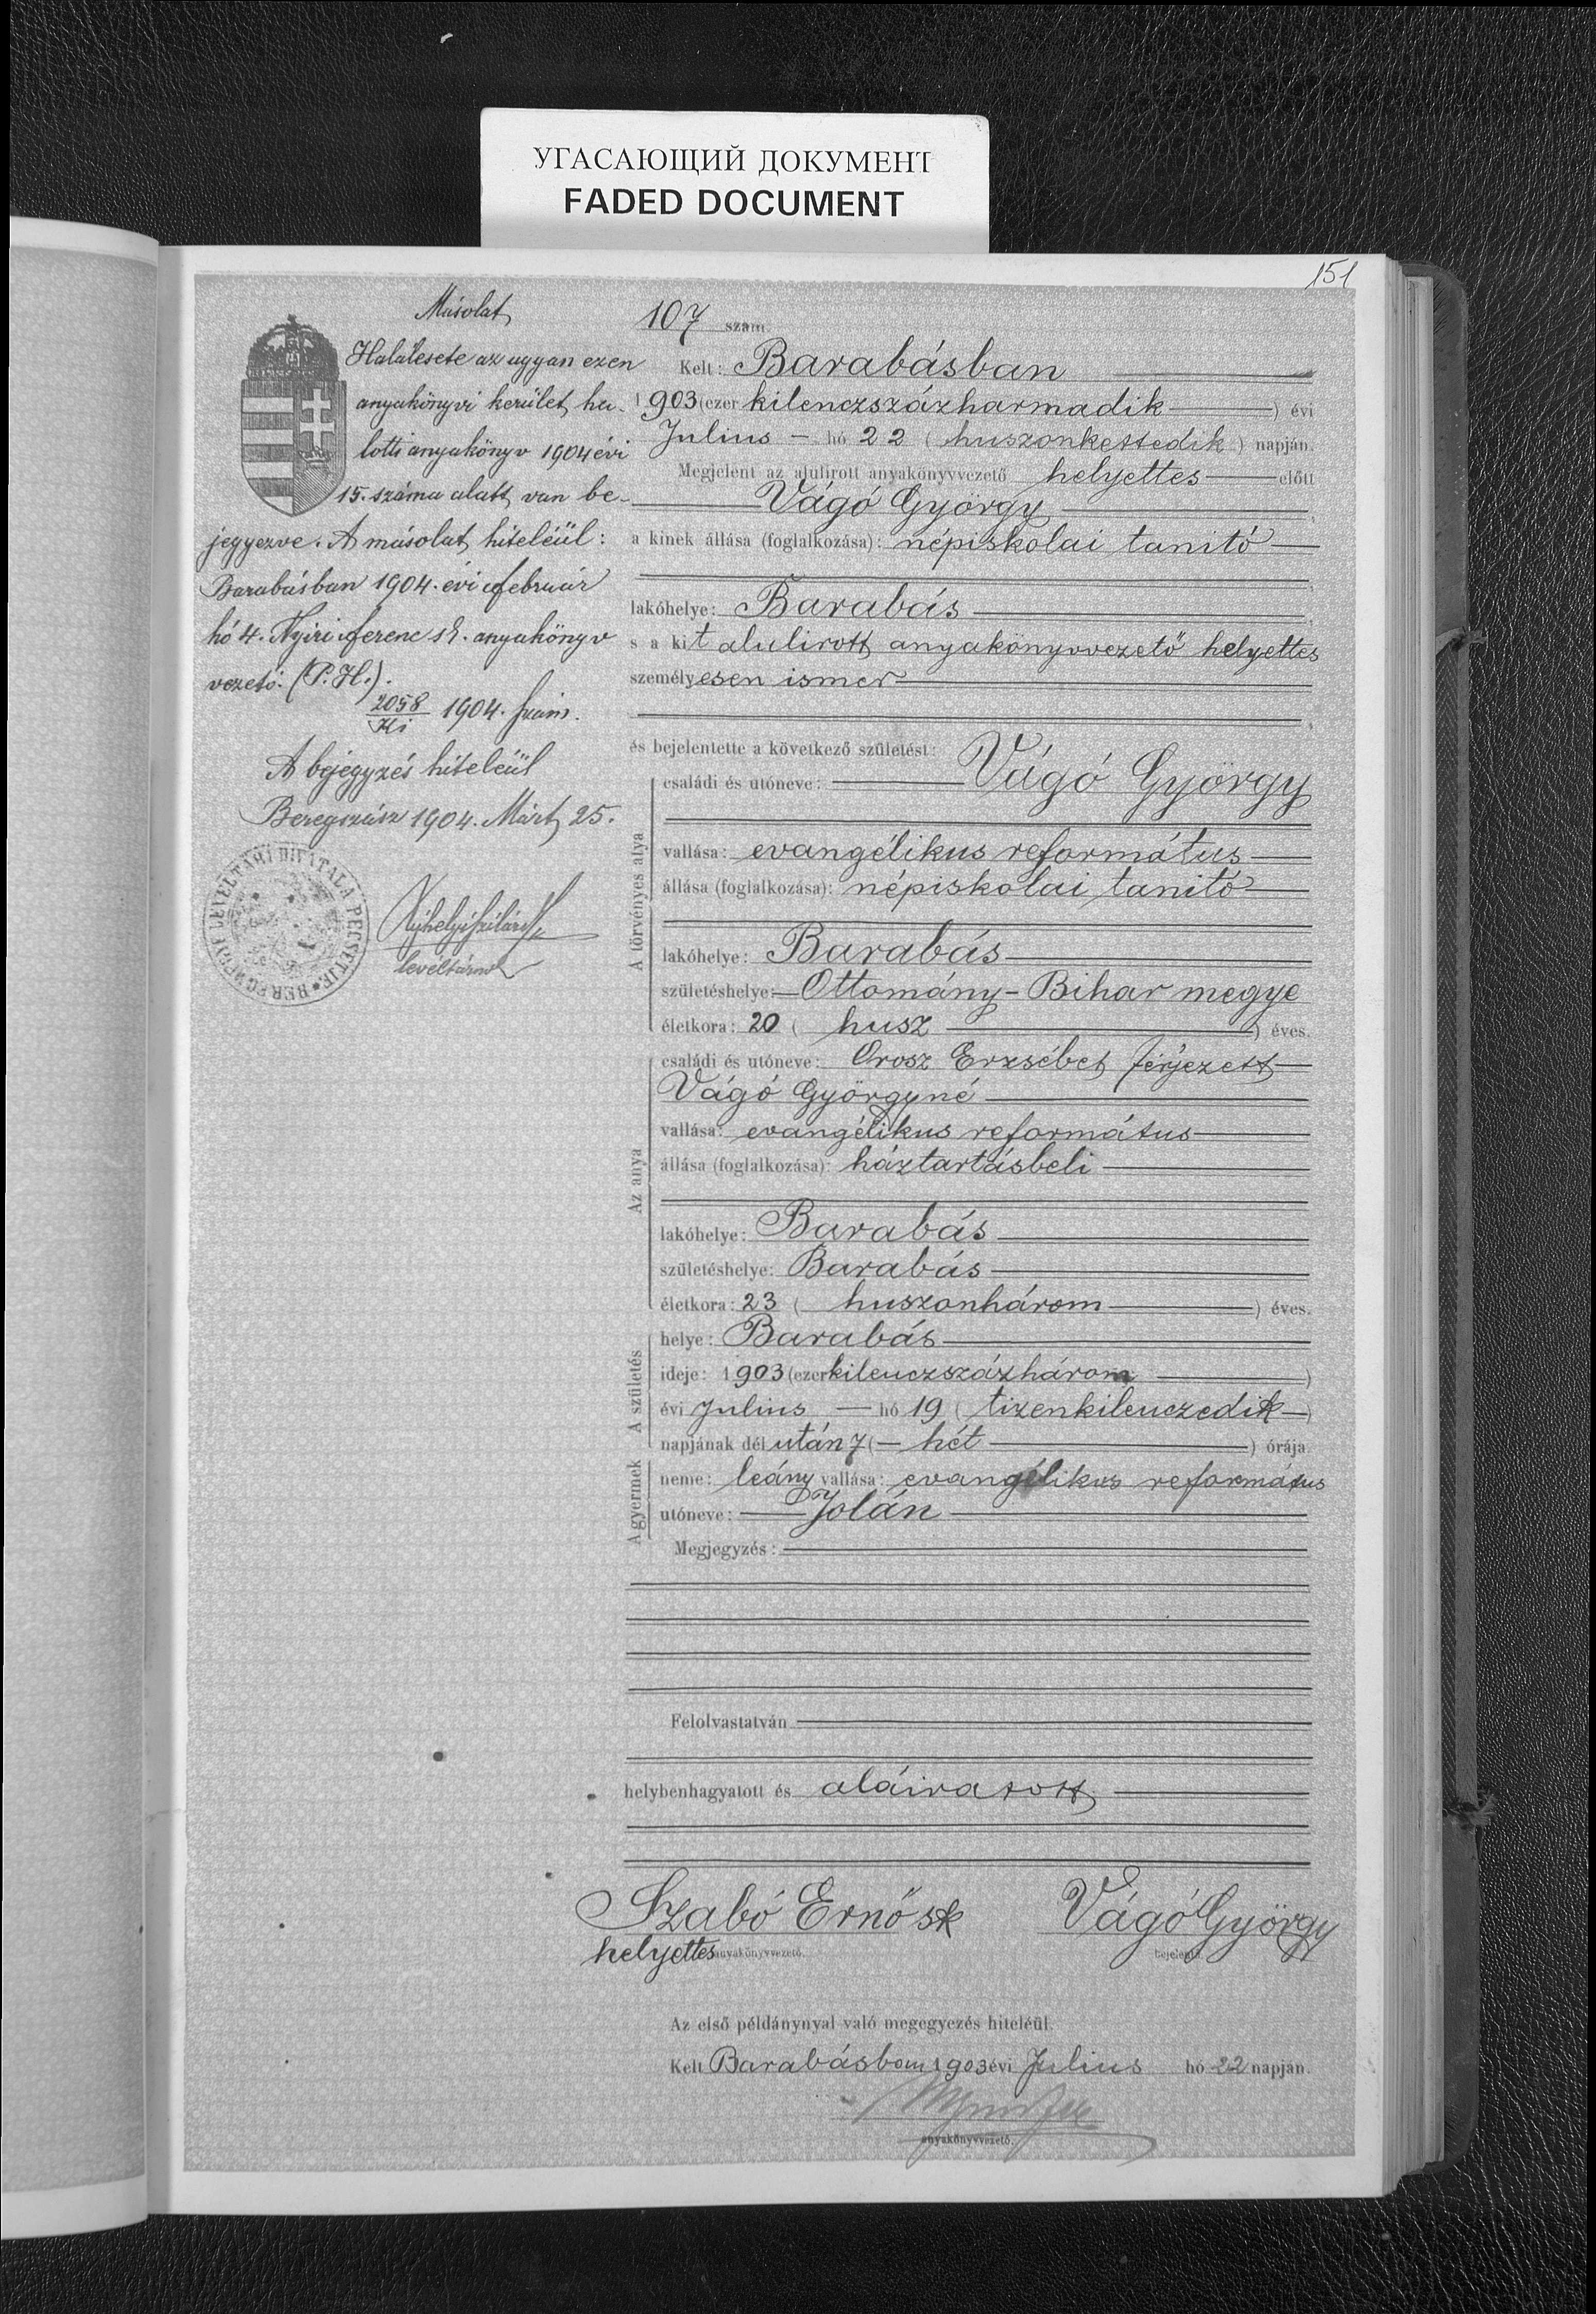 УГАСАЮЩИЙ ДОКУМЕНТ
FADED DOCUMENT
151
Másolat
Halálesete az ugyan ezen
anyakönyvi kerület ha-
lotti anyakönyv 1904 évi
15. száma alatt van be-
jegyezve. A másolat hiteléül:
Barabásban 1904. évi február
hó 4. Nyiri Ferenc sk. anyakönyv
vezető. (P. H.).
2058
Ki 1904. szám.
A bejegyzés hiteléül
Beregszász 1904. Márt 25.
BEREGMEGYE LEVÉLTÁRI HIVATALA PECSÉTJE
levéltárnok
107 szám.
Kelt: Barabásban
1903 (ezer kilenczszázharmadik) évi
Julius hó 22 (huszonkettedik) napján.
Megjelent az alulirott anyakönyvvezető helyettes előtt
Vágó György,
a kinek állása (foglalkozása): népiskolai tanitó
lakóhelye: Barabás,
s a kit alulirott anyakönyvvezető helyettes
személyesen ismer
és bejelentette a következő születést:
A törvényes atya
családi és utóneve: Vágó György
vallása: evangélikus református
állása (foglalkozása): népiskolai tanitó
lakóhelye: Barabás
születéshelye: Ottomány-Bihar megye
életkora: 20 (husz) éves.
Az anya
családi és utóneve: Orosz Erzsébet férjezett
Vágó Györgyné
vallása: evangélikus református
állása (foglalkozása): háztartásbeli
lakóhelye: Barabás
születéshelye: Barabás
életkora: 23 (huszonhárom) éves.
A születés
helye: Barabás
ideje: 1903 (ezer kilenczszázhárom)
évi Julius hó 19 (tizenkilenczedik)
napjának dél után 7 (hét) órája.
A gyermek
neme: leány vallása: evangélikus református
utóneve: Jolán
Megjegyzés:
Felolvastatván
helybenhagyatott és aláiratott
Szabó Ernő sk Vágó György
helyettes anyakönyvvezető. bejelentő.
Az első példánynyal való megegyezés hiteléül.
Kelt Barabásban 1903 évi Julius hó 22 napján.
anyakönyvvezető.